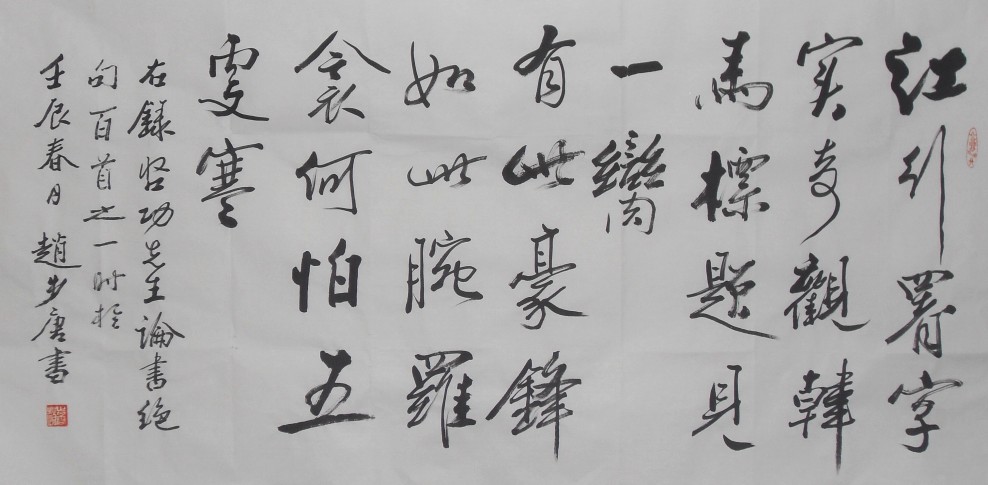 江行署字
實奇觀韓
馬標題見
一臠
有此豪鋒
如此腕羅
衾何怕五
更寒
右錄啓功先生論書絕
句百首之一時於
壬辰春月趙步唐書